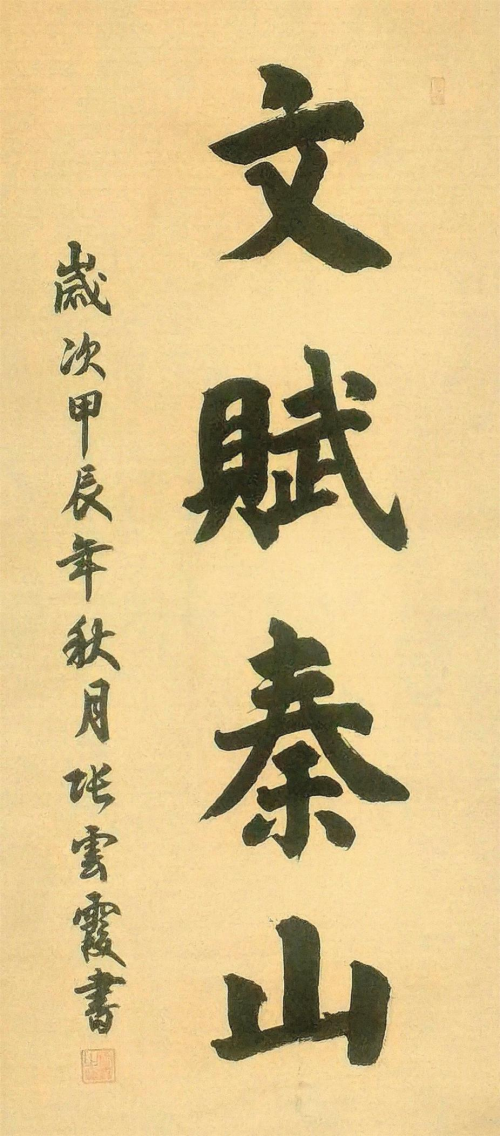 文賦秦山
歲次甲辰年秋月張雲霞書